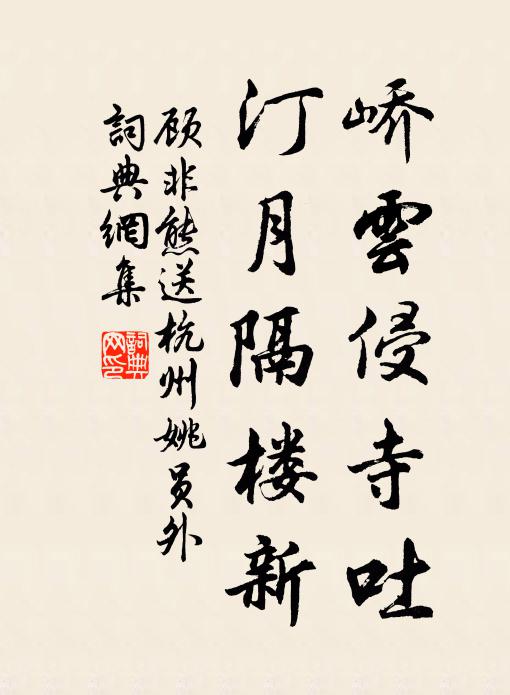 峤雲侵寺吐
汀月隔楼新
顾非熊送杭州姚员外
詞典網集
詞典网印